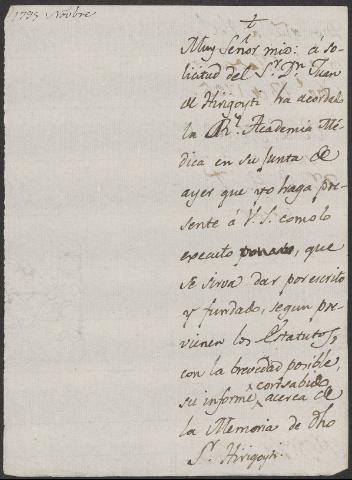 1795 Novbre
Muy Señor mio: á so-
licitud del Sr. Dn. Juan
de Hirigoyti ha acordado
la Rl. Academia Mé-
dica en su Junta de
ayer que yo haga pre-
sente á V.S. como lo
executo, que
se sirva dar por escrito
y fundado, segun pre-
vienen los Estatutos,
con la brevedad posible,
cortsabido
su informe acerca de
la Memoria de dho
Sr. Hirigoyti.